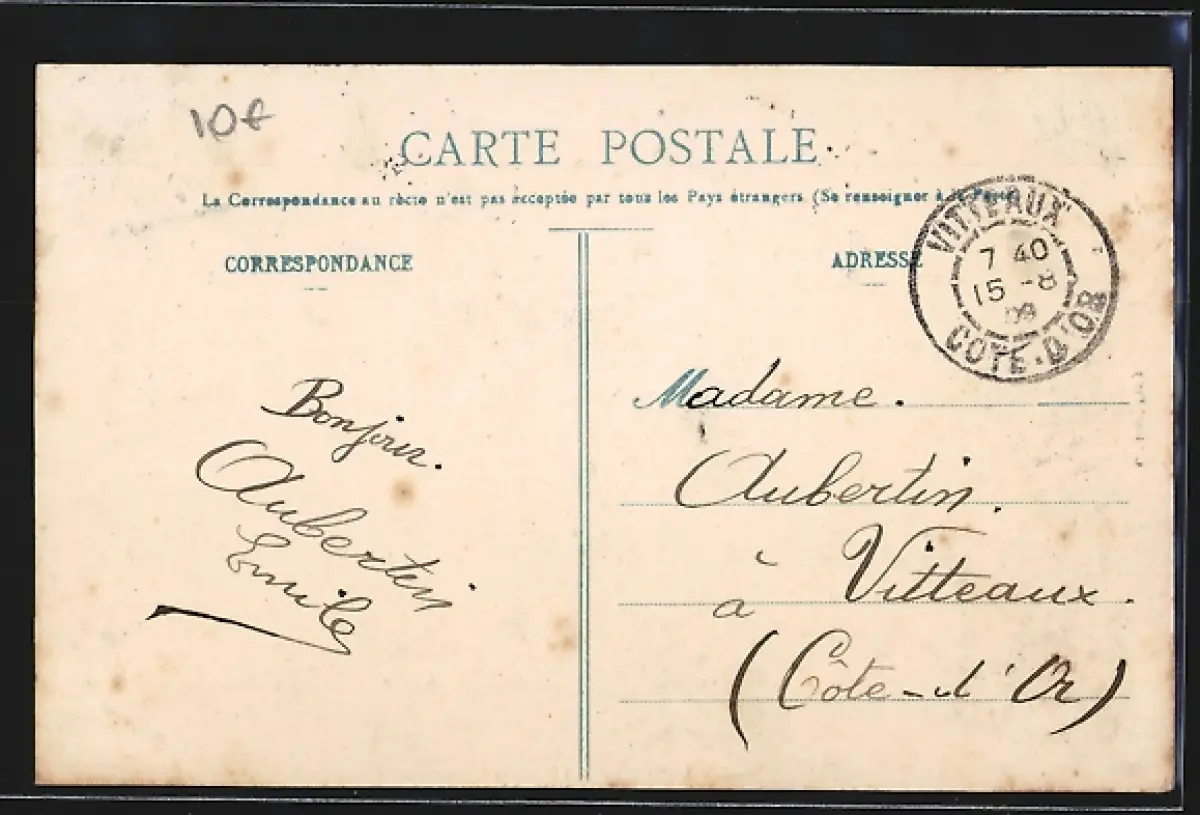 10€
CARTE POSTALE
La Correspondance au recto n'est pas acceptée par tous les Pays étrangers (Se renseigner à la Poste)
CORRESPONDANCE
ADRESSE
VITTEAUX
7 40
15 -8
09
COTE-D'OR
Bonjour.
Aubertin
Emile
Madame.
Aubertin.
à Vitteaux.
(Côte-d'Or)